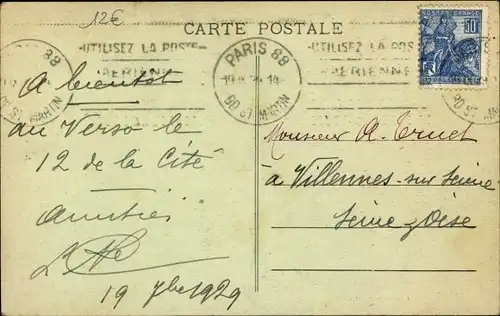 12€
CARTE POSTALE
PARIS 88
BD ST MARTIN
-UTILISEZ LA POSTE-
AÉRIENNE
PARIS 88
BD ST MARTIN
UTILISEZ LA POSTE
AÉRIENNE
BD ST MARTIN
A bientot
au Verso le
12 de la Cité
Amitiés
19 7bre 1929
Monsieur A. Truet
à Villennes-sur Seine
Seine & Oise